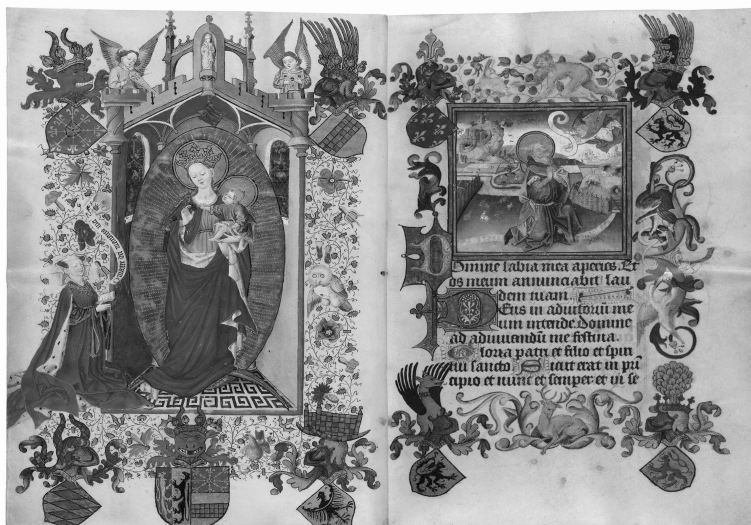 Domine labia mea aperies. Et
os meum annunciabit lau
dem tuam
Eus in adiutoriū me
um intende Domine
ad adiuuandū me festina
loria patri et filio et spiri
tui sancto Sicut erat in pri
cipio et nunc et semper et in se